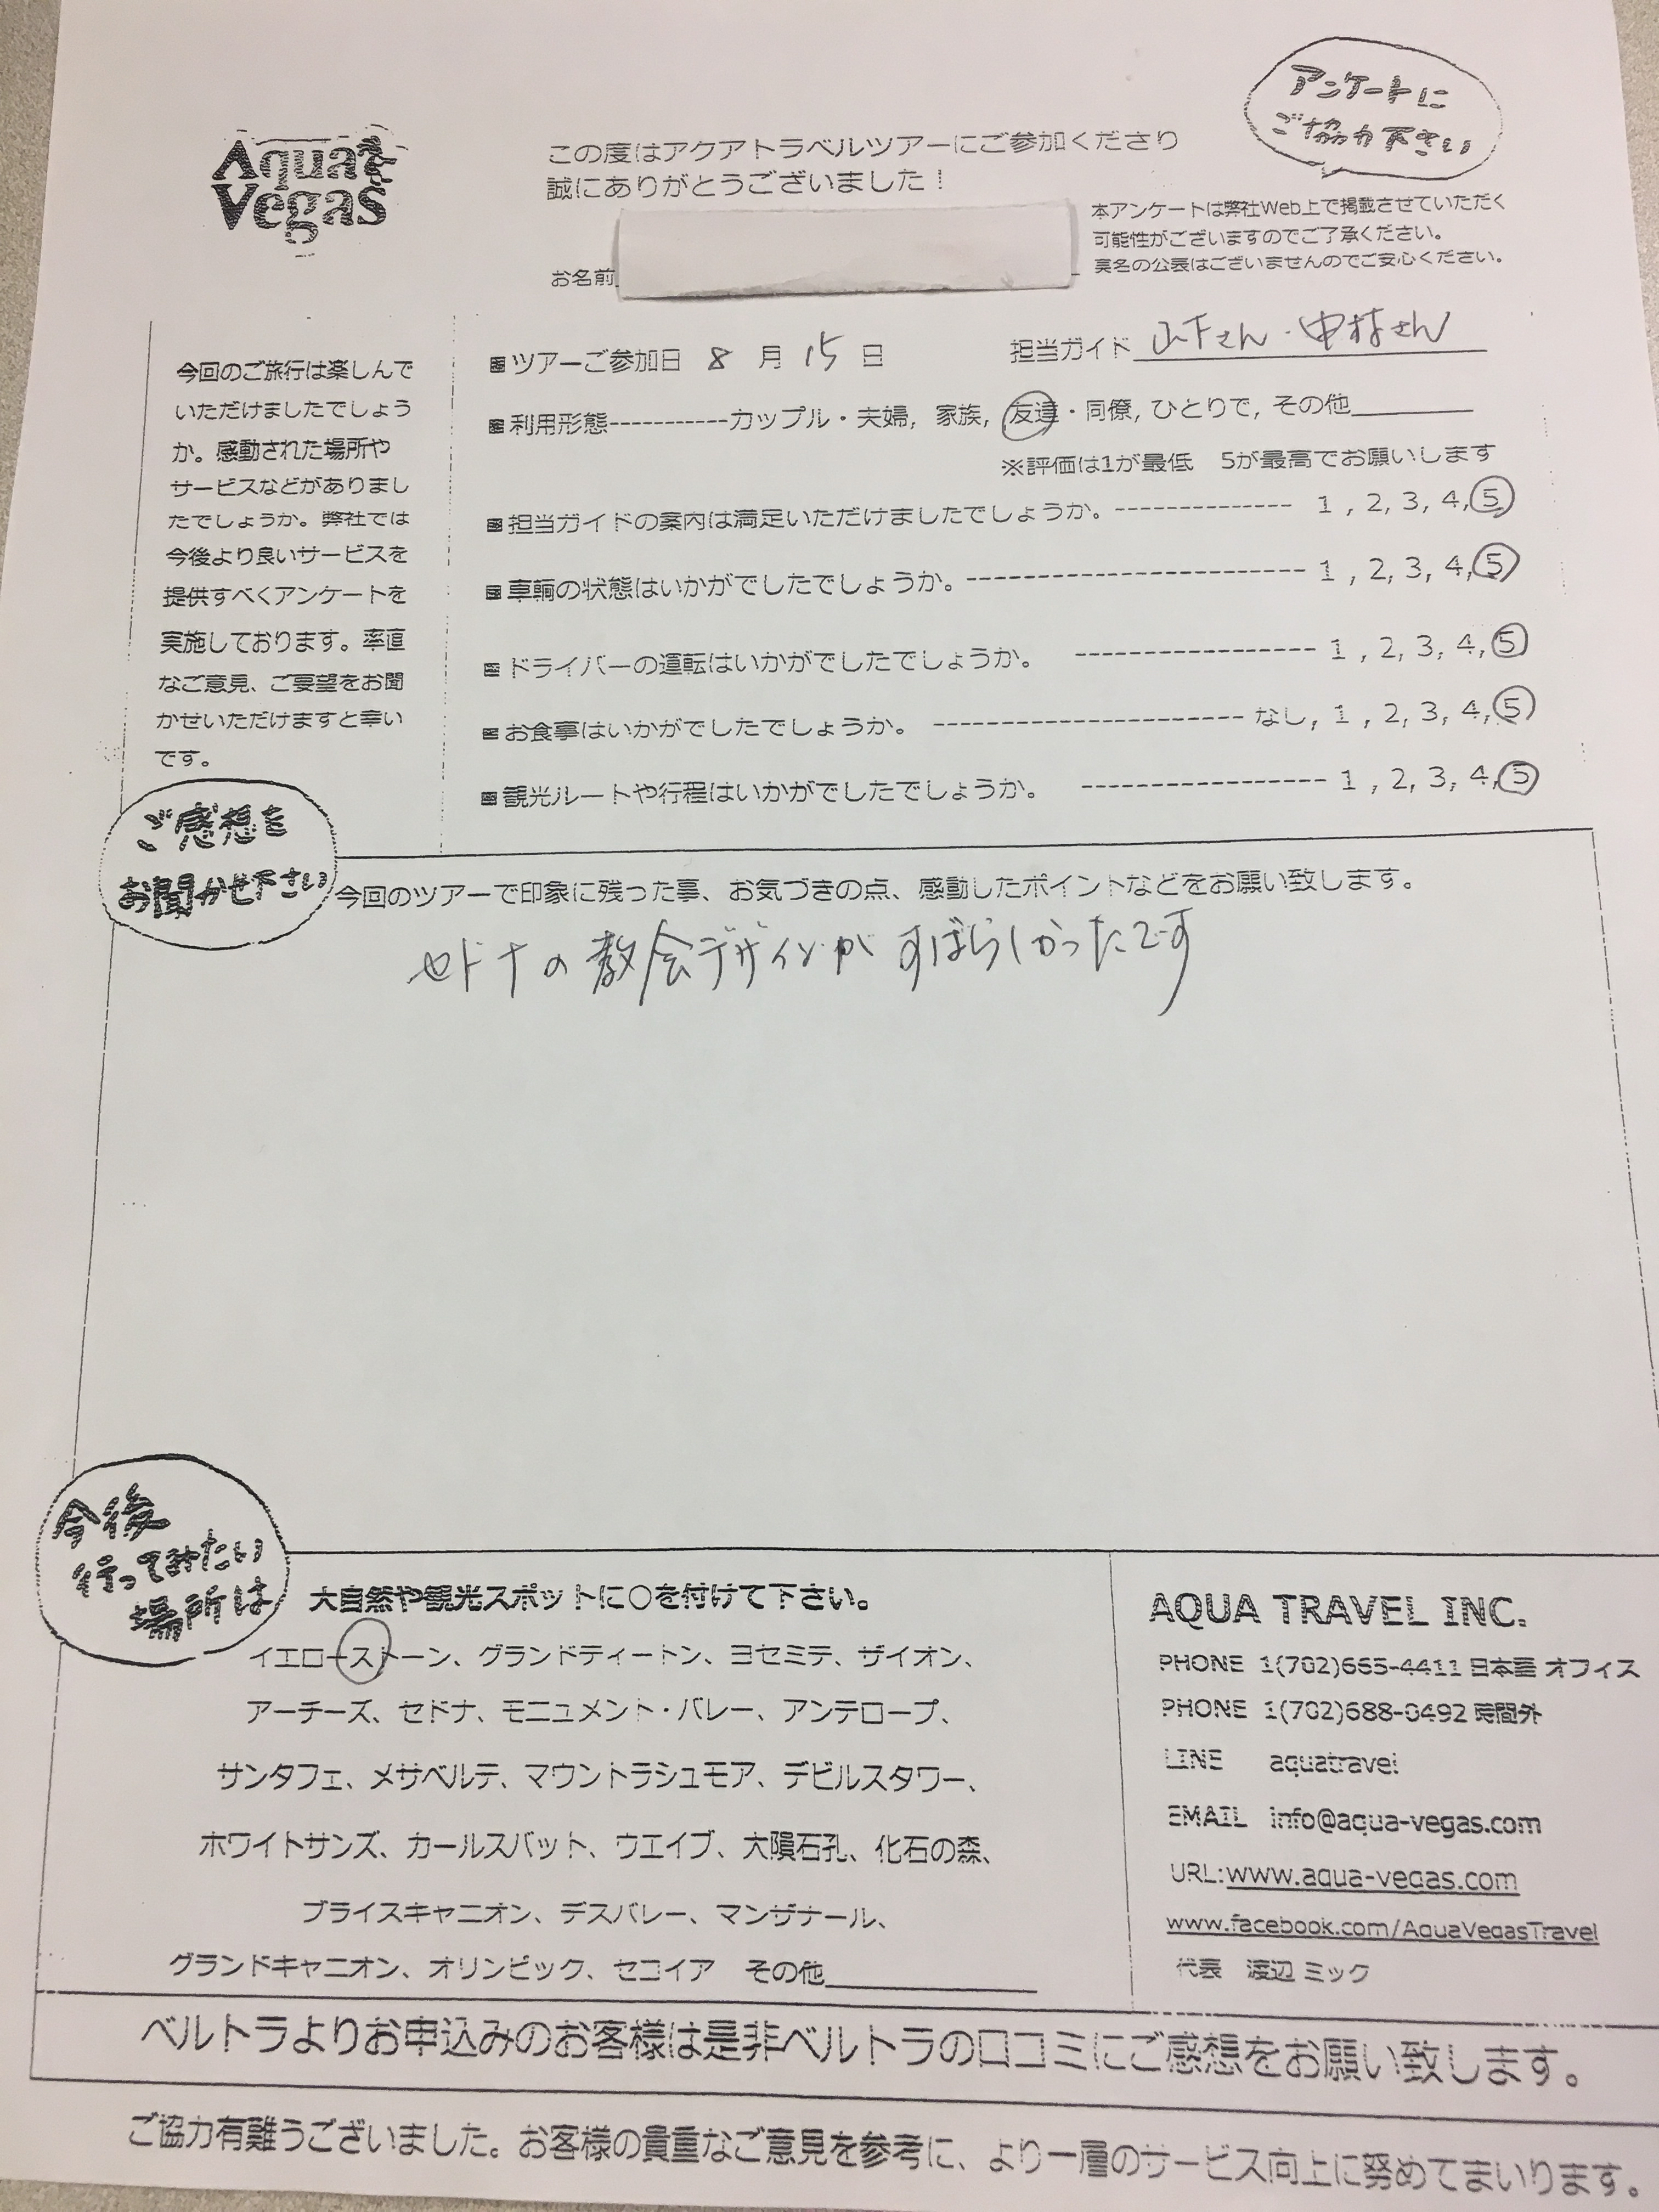 アンケートに
ご協力下さい
Aqua
Vegas
この度はアクアトラベルツアーにご参加くださり
誠にありがとうございました！
本アンケートは弊社Web上で掲載させていただく
可能性がございますのでご了承ください。
実名の公表はございませんのでご安心ください。
お名前
今回のご旅行は楽しんで
いただけましたでしょう
か。感動された場所や
サービスなどがありまし
たでしょうか。弊社では
今後より良いサービスを
提供すべくアンケートを
実施しております。率直
なご意見、ご要望をお聞
かせいただけますと幸い
です。
■ツアーご参加日 8 月 15 日 担当ガイド 山下さん・中村さん
■利用形態-----------カップル・夫婦, 家族, 友達・同僚, ひとりで, その他
※評価は1が最低 5が最高でお願いします
■担当ガイドの案内は満足いただけましたでしょうか。------------- 1 , 2, 3, 4, 5
■車輌の状態はいかがでしたでしょうか。------------------------- 1 , 2, 3, 4, 5
■ドライバーの運転はいかがでしたでしょうか。 ----------------- 1 , 2, 3, 4, 5
■お食事はいかがでしたでしょうか。 ----------------------- なし, 1 , 2, 3, 4, 5
■観光ルートや行程はいかがでしたでしょうか。 ------------------ 1 , 2, 3, 4, 5
ご感想を
お聞かせ下さい
今回のツアーで印象に残った事、お気づきの点、感動したポイントなどをお願い致します。
セドナの教会デザインがすばらしかったです
今後
行ってみたい
場所は
大自然や観光スポットに○を付けて下さい。
イエローストーン、グランドティートン、ヨセミテ、ザイオン、
アーチーズ、セドナ、モニュメント・バレー、アンテロープ、
サンタフェ、メサベルテ、マウントラシュモア、デビルスタワー、
ホワイトサンズ、カールスバット、ウエイブ、大隕石孔、化石の森、
ブライスキャニオン、デスバレー、マンザナール、
グランドキャニオン、オリンピック、セコイア その他
AQUA TRAVEL INC.
PHONE 1(702)665-4411 日本語 オフィス
PHONE 1(702)688-0492 時間外
LINE aquatravel
EMAIL info@aqua-vegas.com
URL:www.aqua-vegas.com
www.facebook.com/AquaVegasTravel
代表 渡辺 ミック
ベルトラよりお申込みのお客様は是非ベルトラの口コミにご感想をお願い致します。
ご協力有難うございました。お客様の貴重なご意見を参考に、より一層のサービス向上に努めてまいります。